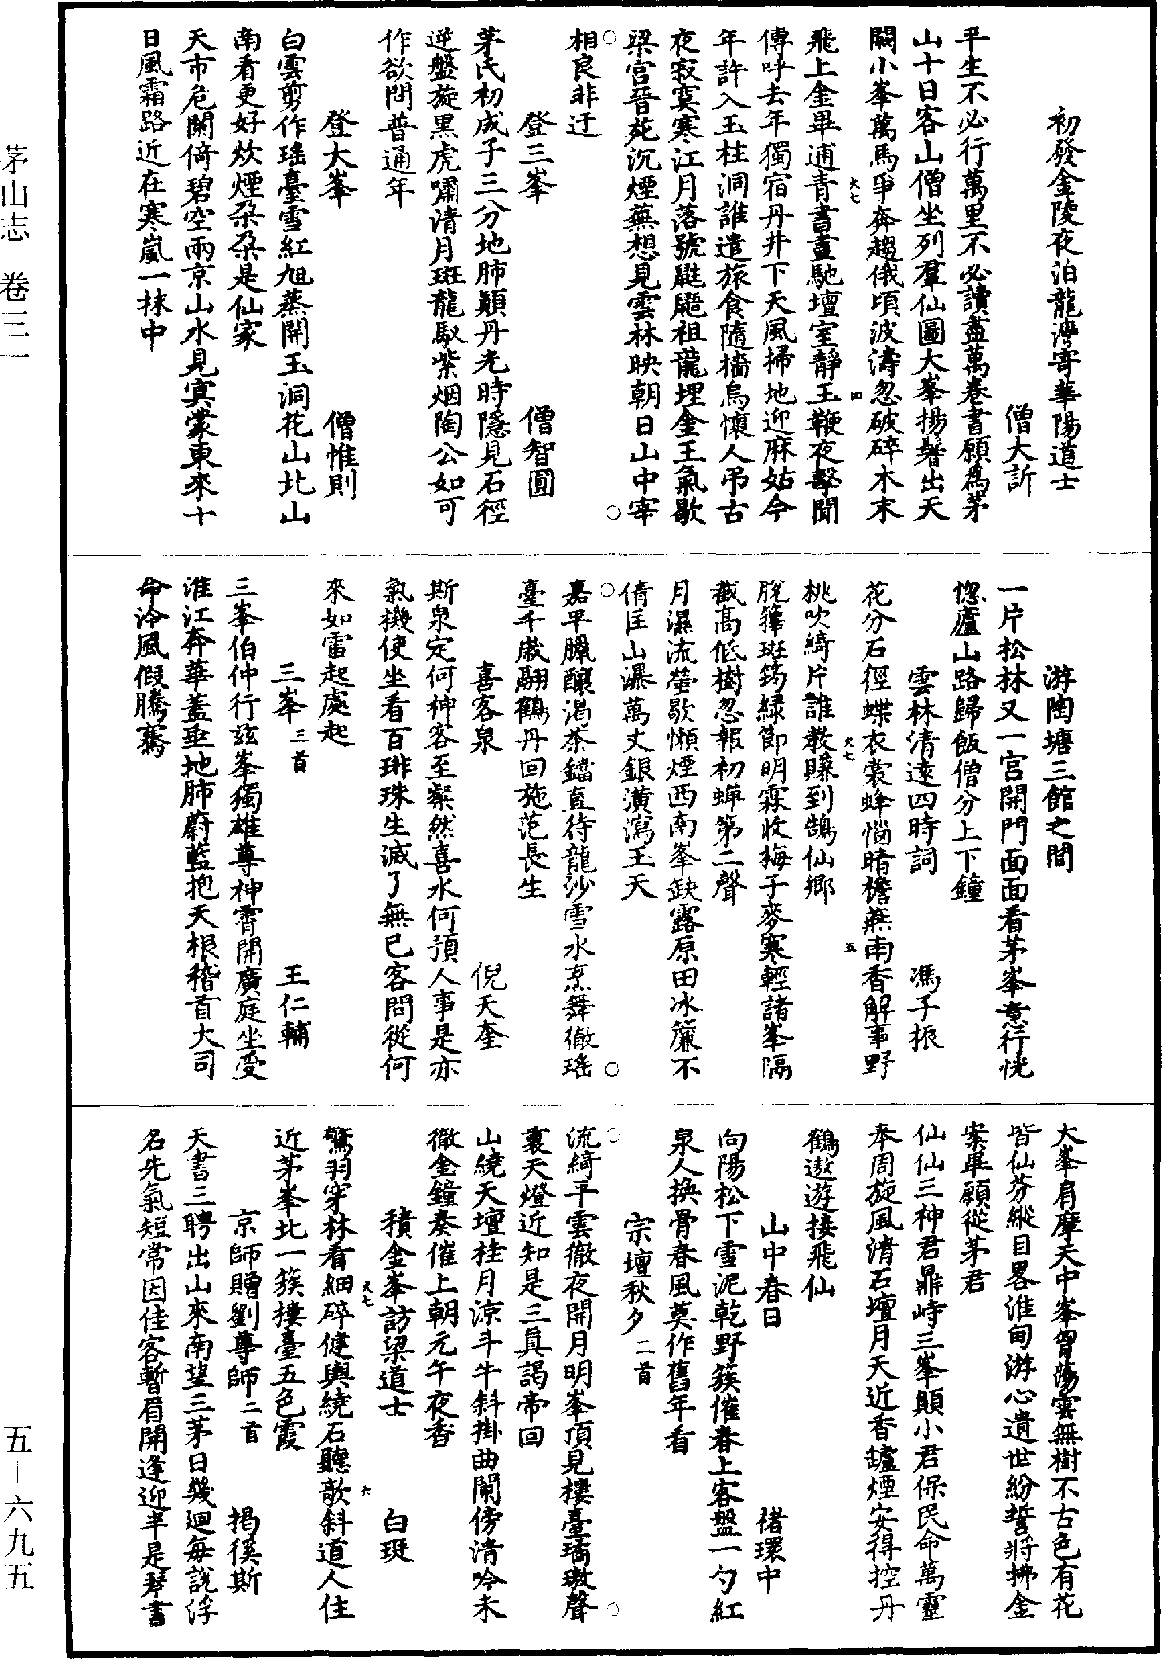 初發金陵夜泊龍灣寄華陽道士
僧大訢
平生不必行萬里不必讀盡萬卷書願爲茅
山十日客山僧坐列羣仙圖大峯揚鬐出天
關小峯萬馬爭奔趨俄頃波濤忽破碎木末
飛上金畢逋青書晝馳壇室靜玉鞭夜擊聞
傳呼去年獨宿丹井下天風掃地迎麻姑今
年許入玉柱洞誰遣旅食隨檣烏懷人弔古
夜寂寞寒江月落號鼪鼯祖龍埋金王氣歇
梁宮晉苑沉煙蕪想見雲林映朝日山中宰
相良非迂
登三峯
僧智圓
茅氏初成子三分地肺顛丹光時隱見石徑
逆盤旋黑虎嘯清月斑龍馭紫烟陶公如可
作欲問普通年
登大峯
僧惟則
白雲剪作瑤臺雪紅旭蒸開玉洞花山北山
南看更好炊煙朶朶是仙家
天市危闌倚碧空兩京山水見冥濛東來十
日風霜路近在寒嵐一抹中
游陶塘三館之間
一片松林又一宮開門面面看茅峯竟行恍
惚廬山路歸飯僧分上下鐘
雲林清遠四時詞
馮子振
花分石徑蝶衣裳蜂惱晴檐蕪南香解事野
桃吹綺片誰教賺到鵠仙鄉
脫籜斑筠綠節明霖收梅子麥寒輕諸峯隔
截高低樹忽報初蟬第二聲
月濕流螢歇懶煙西南峯缺露原田冰簾不
倩匡山瀑萬丈銀潢瀉王天
嘉平臘釀渴茶鐺直待龍沙雪水烹舞徹瑤
臺千歲翩鶴丹回施范長生
喜客泉
倪天奎
斯泉定何神客至粲然喜水何預人事是亦
氣機使坐看百琲珠生滅了無已客問從何
來如雷起處起
三峯三首
王仁輔
三峯伯仲行茲峯獨雄尊神霄開廣庭坐受
淮江奔華蓋垂地肺蔚藍抱天根稽首大司
命泠風假騰騫
大峯肩摩天中峯胷蕩雲無樹不古色有花
皆仙芬縱目畧淮甸游心遺世紛誓將拂金
案畢願從茅君
仙仙三神君鼎峙三峯顛小君保民命萬靈
奉周旋風清石壇月天近香罏煙安得控丹
鶴遨遊接飛仙
山中春日
褚環中
向陽松下雪泥乾野蔟催春上客盤一勺紅
泉人換骨春風莫作舊年看
宗壇秋夕二首
流綺平雲徹夜開月明峯頂見樓臺璚璈聲
裏天燈近知是三眞謁帝回
山繞天壇桂月涼斗牛斜掛曲闌傍清吟未
徹金鐘奏催上朝元午夜香
積金峯訪梁道士
白珽
驚羽穿林看細碎健輿繞石聽敧斜道人住
近茅峯北一簇樓臺五色霞
京師贈劉尊師二首
揭傒斯
天書三聘出山來南望三茅日幾迴每說浮
名先氣短常因佳客暫眉開逢迎半是琴書
茅山志　卷三一
五—六九五